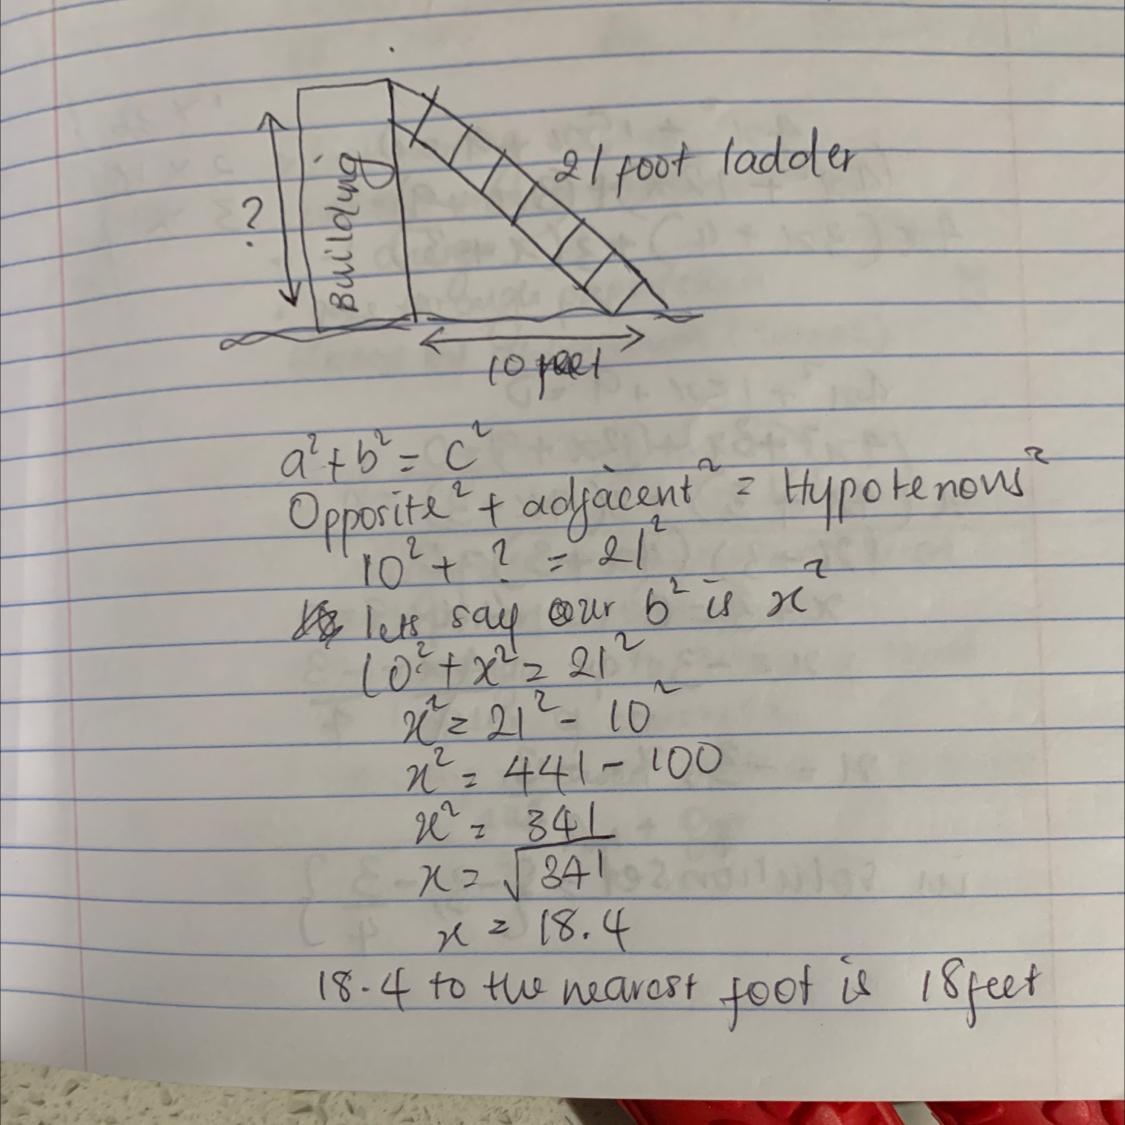 ?
Building
21 foot ladder
10 feet
a² + b² = c²
Opposite² + adjacent² = Hypotenous²
10² + ? = 21²
lets say our b² is x²
10² + x² = 21²
x² = 21² - 10²
x² = 441 - 100
x² = 341
x = √341
x = 18.4
18.4 to the nearest foot is 18 feet